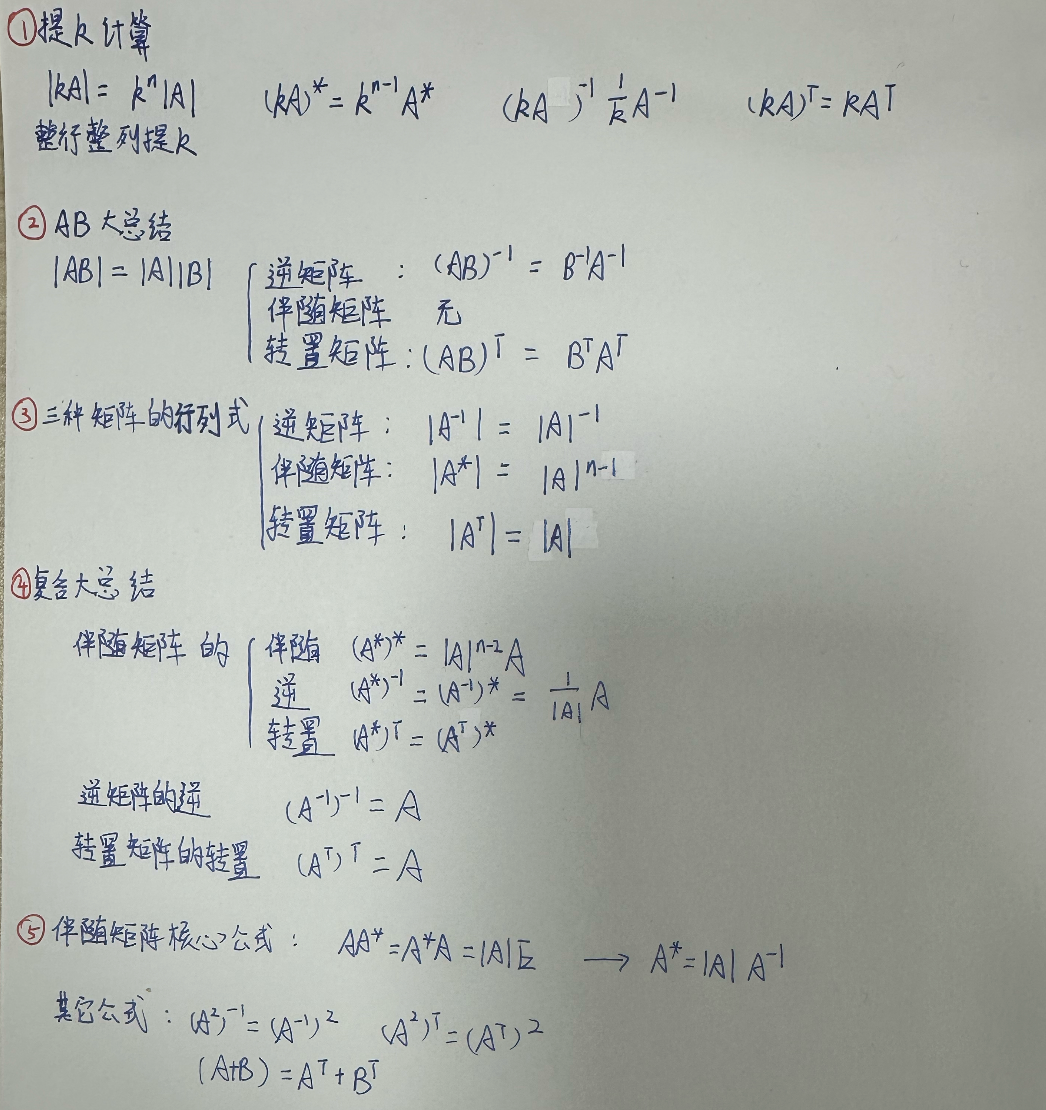 ①提k计算
|kA|= kⁿ|A| (kA)*= kⁿ⁻¹A* (kA )⁻¹ 1/k A⁻¹ (kA)ᵀ= kAᵀ
整行整列提k
②AB大总结
|AB|= |A||B| 逆矩阵 : (AB)⁻¹ = B⁻¹A⁻¹
伴随矩阵 无
转置矩阵 : (AB)ᵀ = BᵀAᵀ
③三种矩阵的行列式 逆矩阵 : |A⁻¹| = |A|⁻¹
伴随矩阵: |A*| = |A|ⁿ⁻¹
转置矩阵 : |Aᵀ| = |A|
④复合大总结
伴随矩阵的 伴随 (A*)* = |A|ⁿ⁻²A
逆 (A*)⁻¹ = (A⁻¹)* = 1/|A| A
转置 (A*)ᵀ = (Aᵀ)*
逆矩阵的逆 (A⁻¹)⁻¹ = A
转置矩阵的转置 (Aᵀ)ᵀ = A
⑤伴随矩阵核心公式: AA*=A*A=|A|E → A*=|A| A⁻¹
其它公式: (A²)⁻¹=(A⁻¹)² (A²)ᵀ=(Aᵀ)²
(A+B) = Aᵀ+Bᵀ